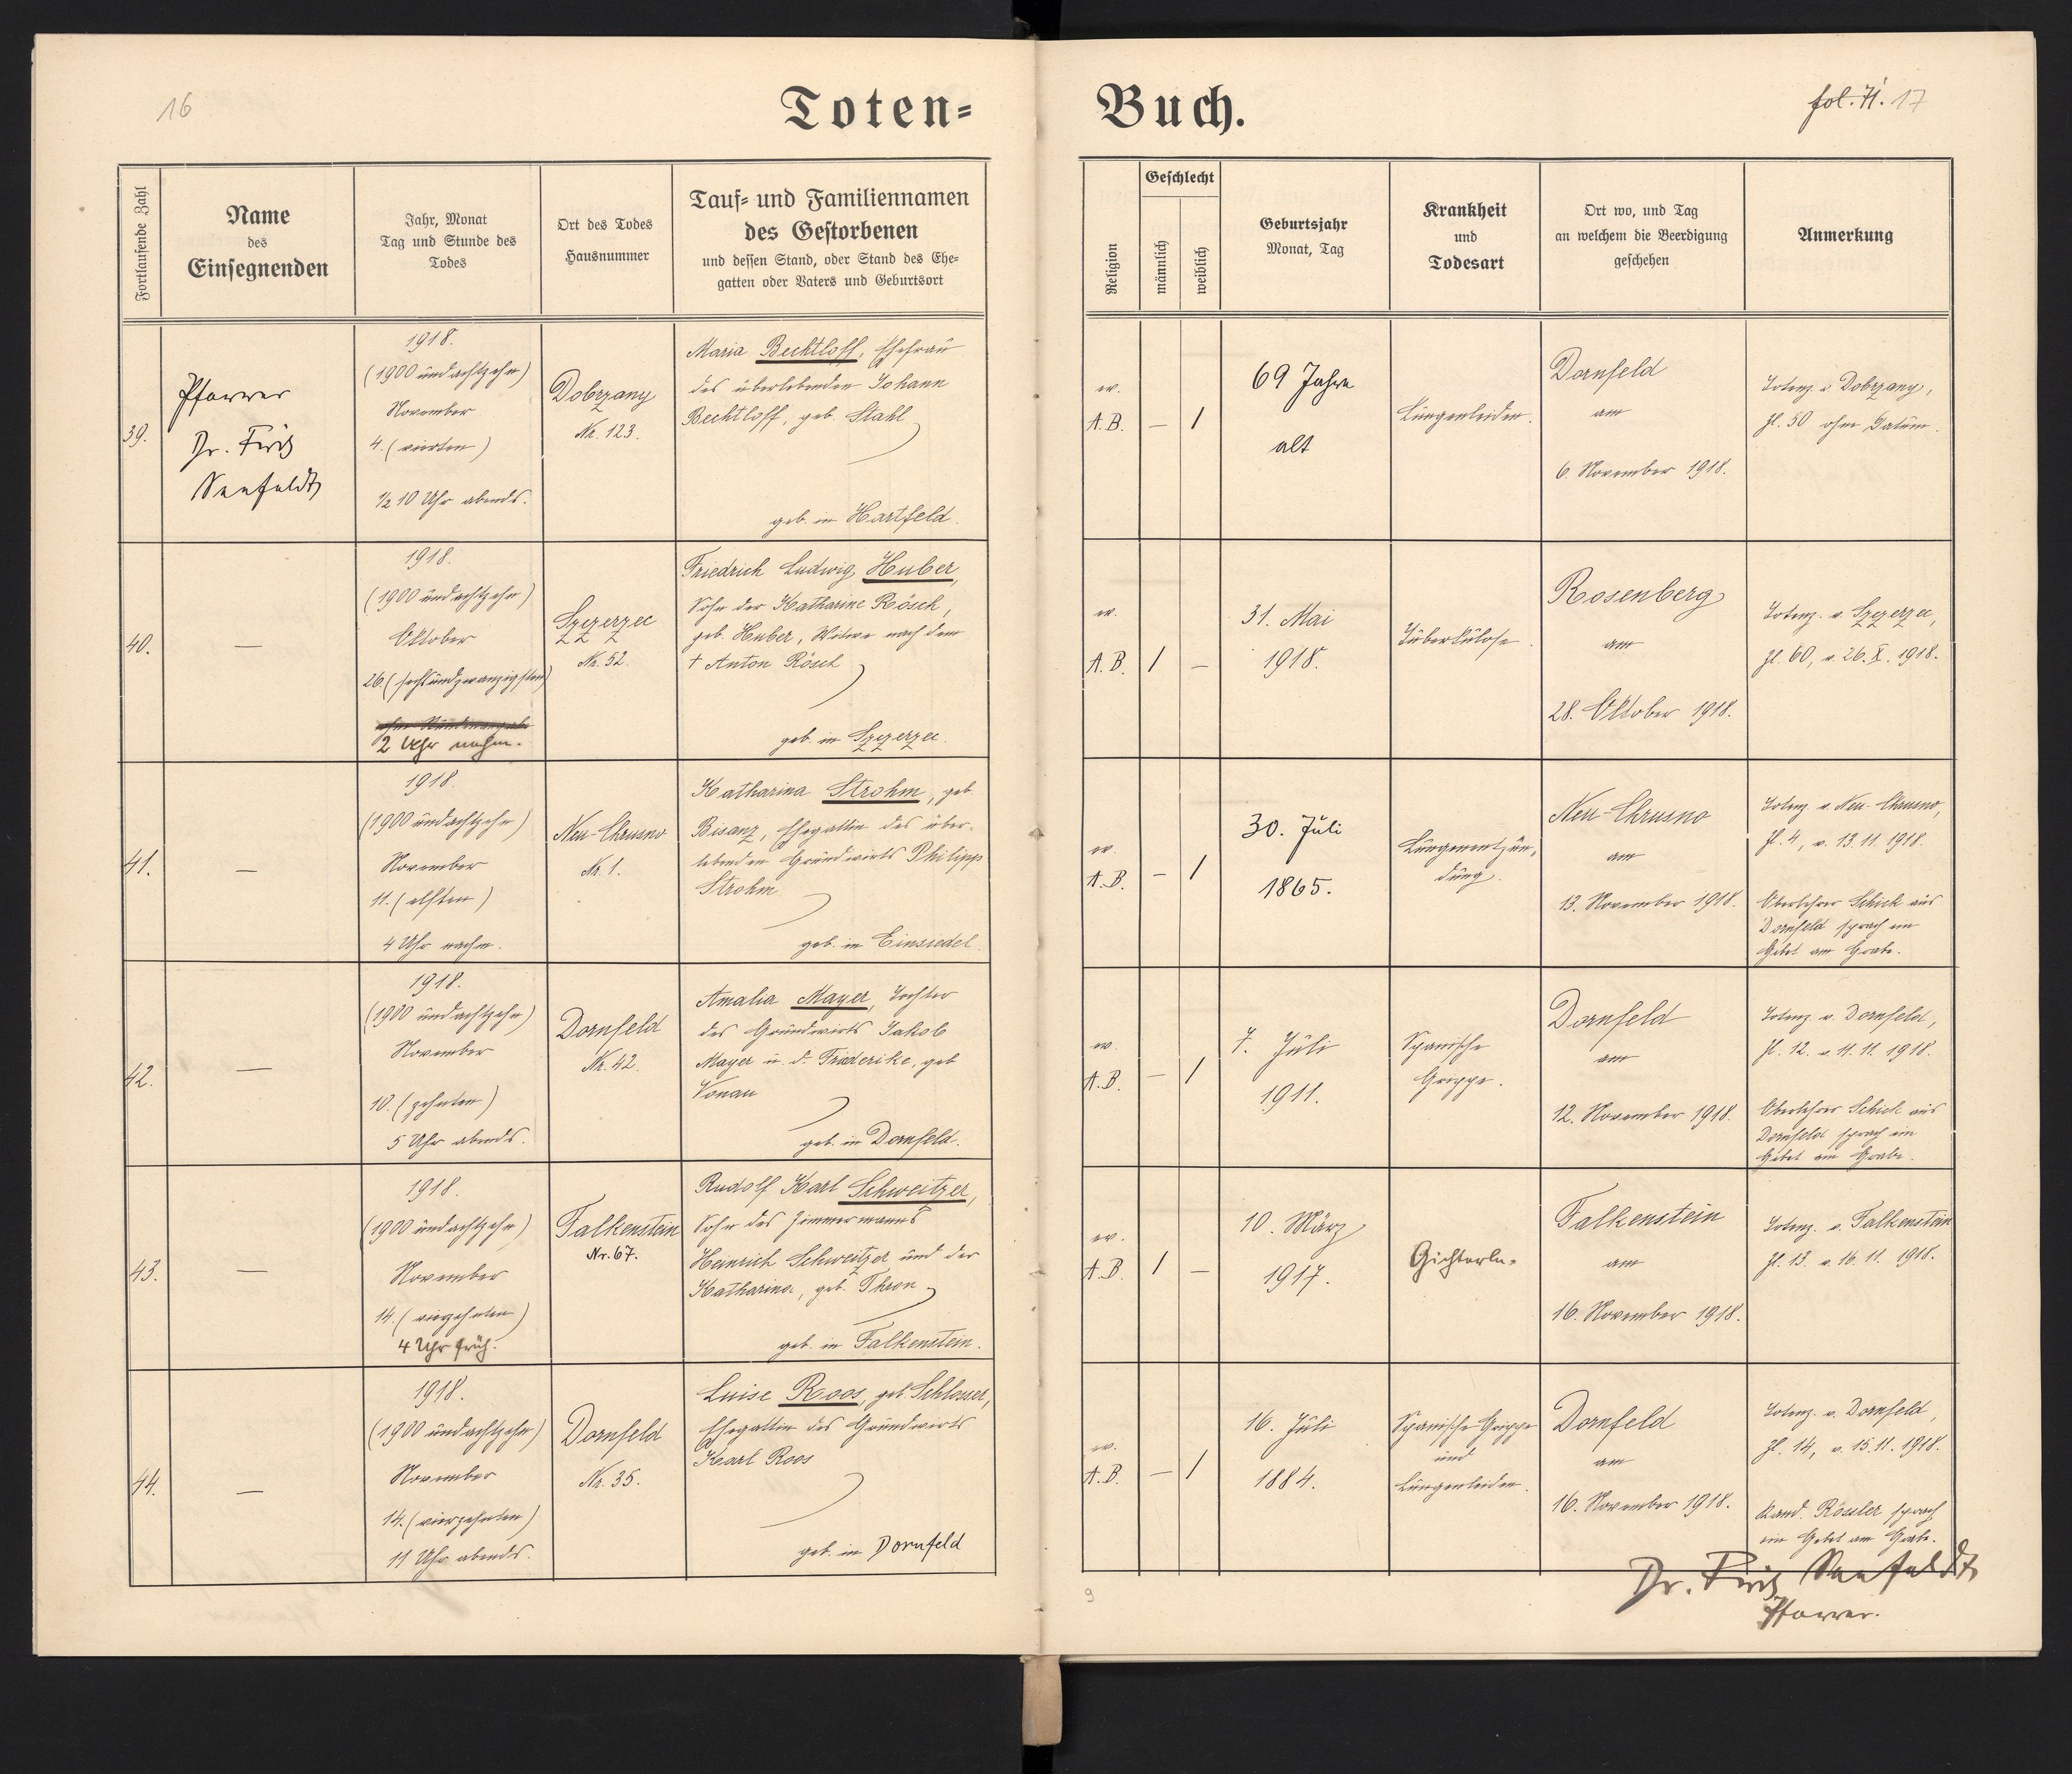 16
Toten=
Buch.
fol. 71. 17
Fortlaufende Zahl
Name
des
Einsegnenden
Jahr, Monat
Tag und Stunde des
Todes
Ort des Todes
Hausnummer
Tauf= und Familiennamen
des Gestorbenen
und dessen Stand, oder Stand des Ehe=
gatten oder Vaters und Geburtsort
Religion
Geschlecht
männlich
weiblich
Geburtsjahr
Monat, Tag
Krankheit
und
Todesart
Ort wo, und Tag
an welchem die Beerdigung
geschehen
Anmerkung
39.
Pfarrer
Dr. Fritz
Seefeldt
1918.
(1900 undachtzehn)
November
4. (vierten)
½ 10 Uhr abends.
Dobrzany
Nr. 123.
Maria Bechtloff, Ehefrau
des überlebenden Johann
Bechtloff, geb. Stahl
geb. in Hartfeld.
ev.
A.B.
—
1
69 Jahre
alt
Lungenleiden.
Dornfeld
am
6. November 1918.
Totenz. v. Dobrzany,
Zl. 50 ohne Datum.
40.
—
1918.
(1900 undachtzehn)
Oktober
26. (sechsundzwanzigsten)
2 Uhr nachm.
Szczerzec
Nr. 52.
Friedrich Ludwig Huber,
Sohn der Katharine Rösch,
geb. Huber, Witwe nach dem
† Anton Rösch
geb. in Szczerzec.
ev.
A.B.
1
—
31. Mai
1918.
Tuberkulose.
Rosenberg
am
28. Oktober 1918.
Totenz. v. Szczerzec,
Zl. 60, v. 26. X. 1918.
41.
—
1918.
(1900 undachtzehn)
November
11. (elften)
4 Uhr nachm.
Neu-Chrusno
Nr. 1.
Katharina Strohm, geb.
Bisanz, Ehegattin des über-
lebenden Grundwirts Philipp
Strohm
geb. in Einsiedel.
ev.
A.B.
—
1
30. Juli
1865.
Lungenentzün-
dung.
Neu-Chrusno
am
13. November 1918.
Totenz. v. Neu-Chrusno,
Zl. 4, v. 13. 11. 1918.
Oberlehrer Schick aus
Dornfeld sprach ein
Gebet am Grabe.
42.
—
1918.
(1900 undachtzehn)
November
10. (zehnten)
5 Uhr abends.
Dornfeld
Nr. 42.
Amalia Mayer, Tochter
des Grundwirts Jakob
Mayer u. d. Friederike, geb
Vonau
geb. in Dornfeld.
ev.
A.B.
—
1
7. Juli
1911.
Spanische
Grippe.
Dornfeld
am
12. November 1918.
Totenz. v. Dornfeld,
Zl. 12. v. 11. 11. 1918.
Oberlehrer Schick aus
Dornfeld sprach ein
Gebet am Grabe.
43.
—
1918.
(1900 undachtzehn)
November
14. (vierzehnten)
4 Uhr früh.
Falkenstein
Nr. 67.
Rudolf Karl Schweitzer,
Sohn des Zimmermanns
Heinrich Schweitzer und der
Katharina, geb. Thron
geb. in Falkenstein.
ev.
A.B.
1
—
10. März
1917.
Gichterln.
Falkenstein
am
16. November 1918.
Totenz. v. Falkenstein
Zl. 13. v. 16. 11. 1918.
44.
—
1918.
(1900 undachtzehn)
November
14. (vierzehnten)
11 Uhr abends.
Dornfeld
Nr. 35.
Luise Roos, geb. Schlosser,
Ehegattin des Grundwirts
Karl Roos
geb. in Dornfeld
ev.
A.B.
—
1
16. Juli
1884.
Spanische Grippe
und
Lungenleiden.
Dornfeld
am
16. November 1918.
Totenz. v. Dornfeld,
Zl. 14, v. 15. 11. 1918.
Kand. Rössler sprach
ein Gebet am Grabe.
Dr. Fritz Seefeldt
Pfarrer.
9